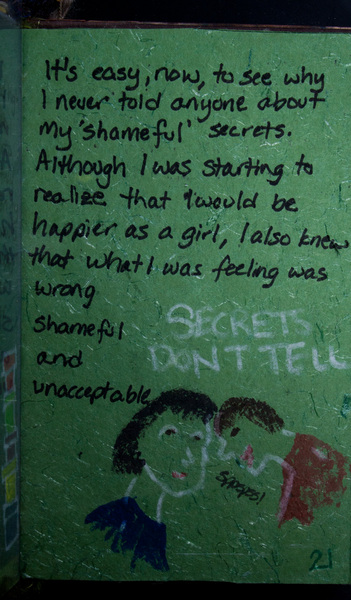 It's easy, now, to see why
I never told anyone about
my 'shameful' secrets.
Although I was starting to
realize that I would be
happier as a girl, I also knew
that what I was feeling was
wrong
shameful
and
unacceptable
SECRETS
DON'T TELL
21